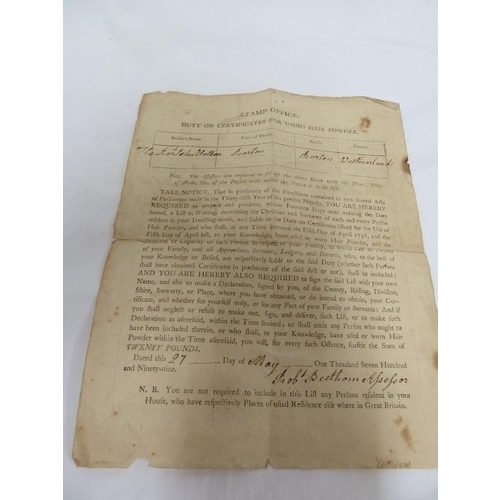 STAMP OFFICE.
DUTY ON CERTIFICATES FOR USING HAIR POWDER.
Person's Name. Place of Abode. Parish. County.
John Barton Barton Westmorland
Note. The Assessors are required to fill up the above Blank with the Name, Place
of Abode, &c. of the Person with whom this Notice is to be left.
TAKE NOTICE, That in pursuance of the Directions contained in two several Acts
of Parliament made in the Thirty-fifth Year of his present Majesty, YOU ARE HEREBY
REQUIRED to prepare and produce, within Fourteen Days next ensuing the Date
hereof, a List in Writing, containing the Christian and Surname of each and every Person
resident in your Dwelling-house, and liable to the Duty on Certificates issued for the Use of
Hair Powder, and who shall, at any Time between the Fifth Day of April 1798, and the
Fifth Day of April last, to your Knowledge, have used or worn Hair Powder, and the
Situation or Capacity of such Person in respect of your Family, in which List as
of your Family, and all Apprentices, Servants, Lodgers, and Inmates, who, to the best of
your Knowledge or Belief, are respectively liable to the said Duty (whether such Persons
shall have obtained Certificates in pursuance of the said Act or not), shall be included:
AND YOU ARE HEREBY ALSO REQUIRED to sign the said List with your own
Name, and also to make a Declaration, signed by you, of the County, Riding, Division,
Shire, Stewartry, or Place, where you have obtained, or do intend to obtain, your Cer-
tificate, and whether for yourself only, or for any Part of your Family or Servants: And if
you shall neglect or refuse to make out, sign, and deliver, such List, or to make such
Declaration as aforesaid, within the Time limited; or shall omit any Person who ought to
have been included therein, or who shall, to your Knowledge, have used or worn Hair
Powder within the Time aforesaid, you will, for every such Offence, forfeit the Sum of
TWENTY POUNDS.
Dated this 27 Day of May One Thousand Seven Hundred
and Ninety-nine.
Robt Beethom Assessor
N. B. You are not required to include in this List any Persons resident in your
House, who have respectively Places of usual Residence elsewhere in Great Britain.